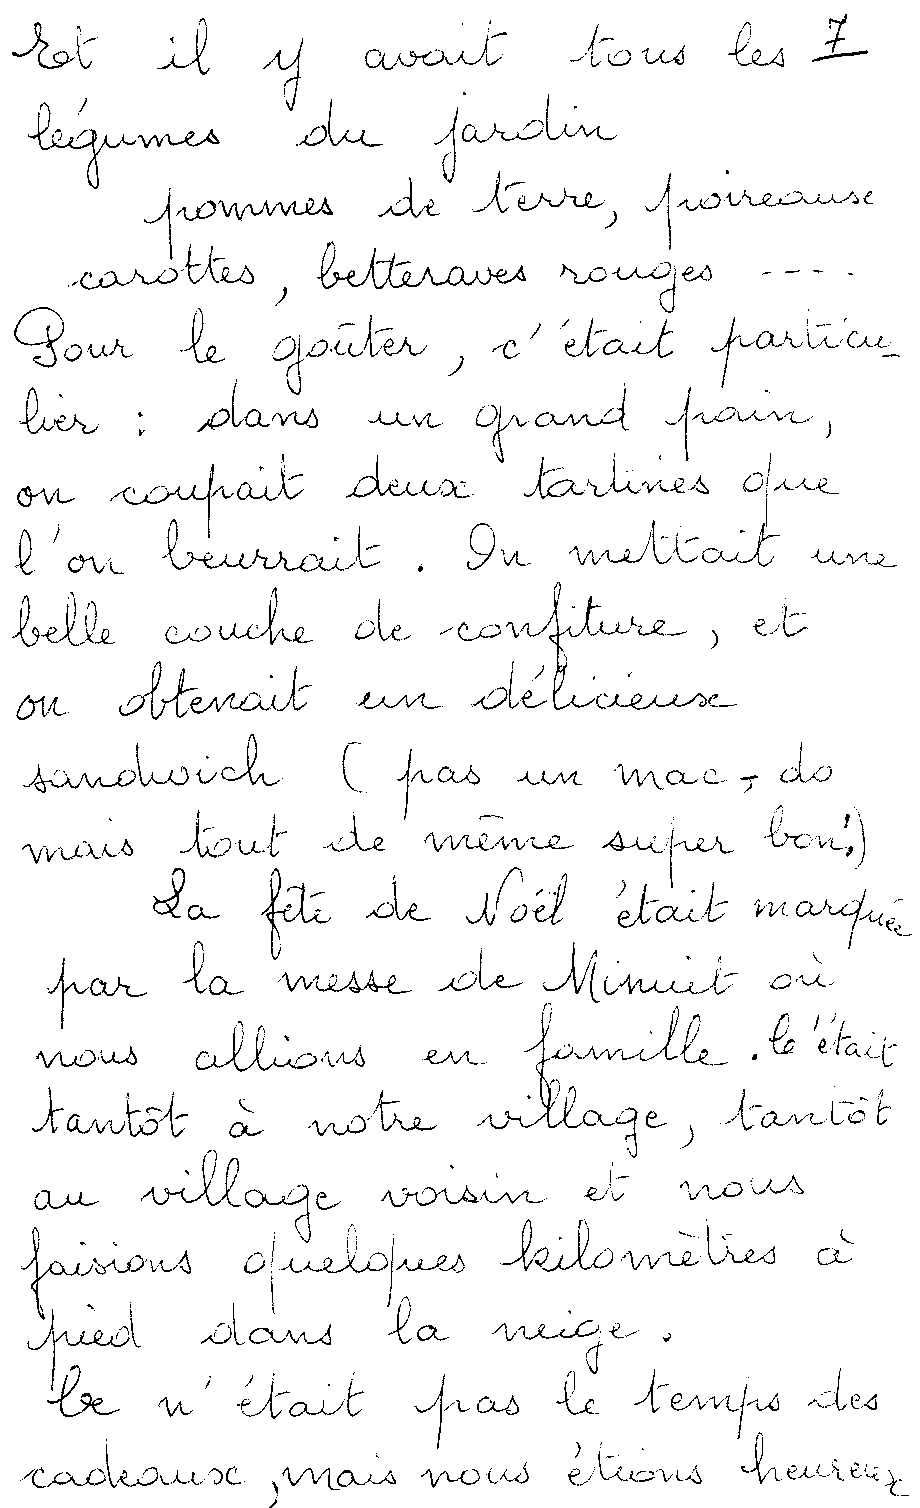 Et il y avait tous les 7
légumes du jardin
pommes de terre, poireaux
carottes, betteraves rouges ----.
Pour le goûter, c'était particu-
lier : dans un grand pain,
on coupait deux tartines que
l'on beurrait. On mettait une
belle couche de confiture, et
on obtenait un délicieux
sandwich ( pas un mac-do
mais tout de même super bon!)
La fête de Noël était marquée
par la messe de Minuit où
nous allions en famille. C'était
tantôt à notre village, tantôt
au village voisin et nous
faisions quelques kilomètres à
pied dans la neige.
Ce n'était pas le temps des
cadeaux, mais nous étions heureux